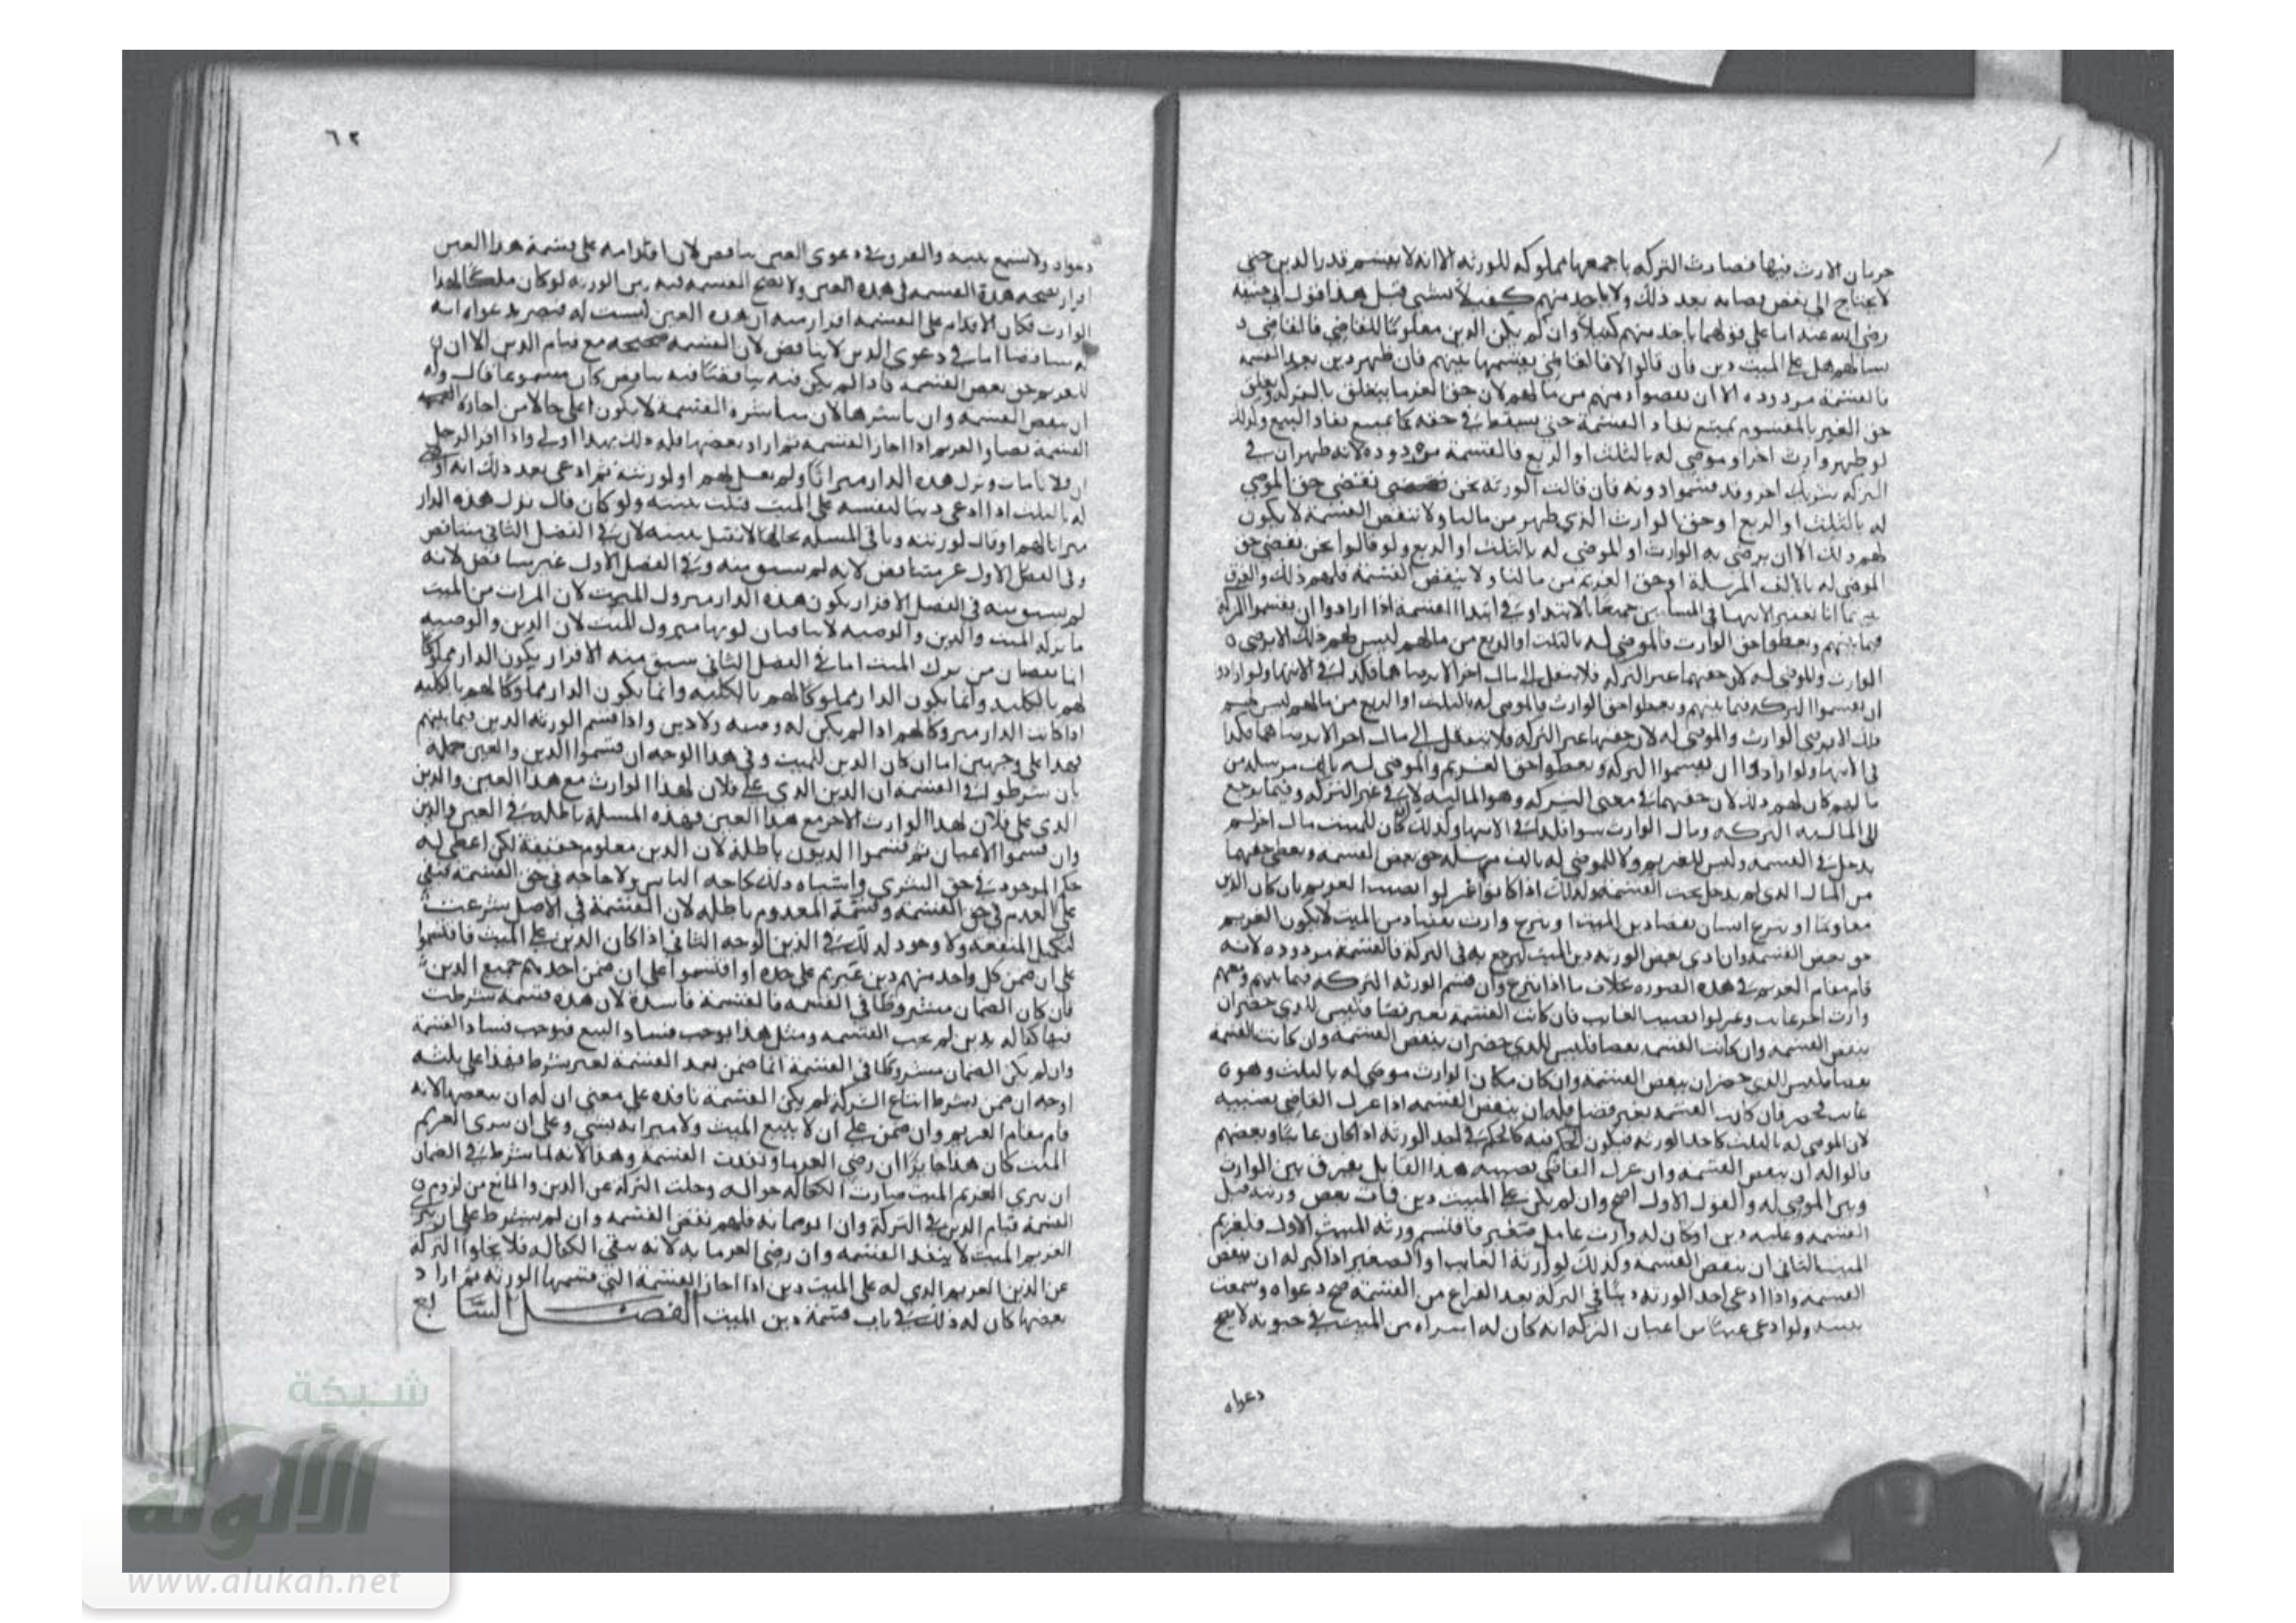 جريان الارث فيها فصارت التركه باجمعها مملوكه للورثه الا انه لا يقسم قدر الدين حتى
لا يحتاج الى نقض قضايه بعد ذلك ولا ياخذ منهم كفيلا بشي قبل هذا قول ابي حنيفه
رضي الله عنه اما على قولهما ياخذ منهم كفيلا وان لم يكن الدين معلوما للقاضي فالقاضي
يسالهم هل على الميت دين فان قالوا لا فالقاضي يقسمها بينهم فان ظهر دين بعد القسمة
فالقسمة مردوده الا ان يقضوا دينهم من مالهم لان حق الغرما يتعلق بالتركه وتعلق
حق الغير بالمقسوم يمنع نفاد القسمة حتى يسقط في حقه كما يمنع نفاد البيع وكذلك
لو ظهر وارث اخر او موصى له بالثلث او الربع فالقسمة مردوده لانه ظهر ان في
التركه شريك اخر وقد قسموا دونه فان قالت الورثه نحن نقضي حق الموصى
له بالثلث او الربع او حق الوارث الذي ظهر من مالنا ولا تنقض القسمة لا يكون
لهم ذلك الا ان يرضى به الوارث او الموصى له بالثلث او الربع ولو قالوا نحن نقضي حق
الموصى له بالالف المرسلة او حق الغريم من مالنا ولا ينقض القسمة فلهم ذلك والفرق
بينهما انا نعتبر الانتها في المسالتين جميعا بالابتدا وفي ابتدا القسمة اذا ارادوا ان يقسموا التركه
فيما بينهم ويعطوا حق الوارث والموصى له بالثلث او الربع من مالهم ليس لهم ذلك الا برضى
الوارث والموصى له لان حقهما عين التركه فلا ينتقل الى مال اخر الا برضاهما فكذلك في الانتها ولو ارادوا
ان يقسموا التركه فيما بينهم ويعطوا حق الوارث والموصى له بالثلث او الربع من مالهم ليس لهم
ذلك الا برضى الوارث والموصى له لان حقهما عين التركه فلا ينتقل الى مال اخر الا برضاهما فكذا
في الانتها ولو ارادوا ان يقسموا التركه ويعطوا حق الغريم والموصى له بالف مرسله من
مالهم كان لهم ذلك لان حقهما في معنى التركه وهو الماليه لا في عين التركه وفيما يرجع
الى الماليه التركه ومال الوارث سوا فكذلك في الانتها وكذلك ان كان للميت مال اخر لم
يدخل في القسمه وليس للغريم ولا للموصى له بالف مرسله حق نقض القسمه ويعطى حقهما
من المال الذي لم يدخل تحت القسمة وكذلك اذا كانوا عزلوا نصيب الغريم بان كان الدين
معلوما او تبرع انسان بقضا دين الميت او تبرع وارث بقضا دين الميت لا يكون للغريم
حق نقض القسمه وان ادى بعض الورثه دين الميت ليرجع به في التركة فالقسمة مردوده لانه
قام مقام الغريم في هذه الصوره بخلاف ما اذا تبرع وان قسم الورثه التركه فيما بينهم ومعهم
وارث اخر غايب وعزلوا نصيب الغايب فان كانت القسمة بغير قضا فليس للذي حضر ان
ينقض القسمه وان كانت القسمه بقضا فليس للذي حضر ان ينقض القسمه وان كانت القسمة
بقضا فليس للذي حضر ان ينقض القسمه وان كان مكان الوارث موصى له بالثلث وهو
غايب فحضر فان كانت القسمة بغير قضا فله ان ينقض القسمه اذا عزل القاضي نصيبه
لان الموصى له بالثلث كاحد الورثه فيكون الحكم فيه كالحكم في احد الورثه اذا كان غايبا وبعضهم
قالوا له ان ينقض القسمه وان عزل القاضي نصيبه هذا القايل يفرق بين الوارث
وبين الموصى له والقول الاول اصح وان لم يكن على الميت دين فمات بعض ورثته قبل
القسمه وعليه دين او كان له وارث غايب او صغير فاقتسم ورثه الميت الاول فلغريم
الميت الثاني ان ينقض القسمه وكذلك لوارثه الغايب او الصغير اذا كبر له ان ينقض
القسمه واذا ادعى احد الورثه دينا في التركة بعد الفراغ من القسمة صح دعواه وسمعت
بينته ولو ادعى عينا من اعيان التركه انه كان له اشتراه من الميت في حيوته لا يصح
دعواه
٦٢
دعواه ولا تسمع بينته والفرق في دعوى العين تناقض لان اقدامه على قسمة هذا العين
اقرار بصحه هذه القسمه في هذه العين ولا تصح القسمه فيه بين الورثه لو كان ملكا لهذا
الوارث فكان الاقدام على القسمة اقرار منه ان هذه العين ليست له فيصير بدعواه انه
له مناقضا اما في دعوى الدين لا يناقض لان القسمة صحيحه مع قيام الدين الا ان
للغريم حق نقض القسمة فاذا لم يكن فيه مناقضا فيه تناقض كان مسموعا قال وله
ان ينقض القسمه وان باشرها لان مباشرة القسمة لا يكون اعلى حالا من اجازه الغريم
القسمة قضا والغريم اذا اجاز القسمه ثم اراد نقضها فله ذلك فهذا اولى واذا اقر الرجل
ان فلانا مات وترك هذه الدار ميراثا ولم يقل لهم او لورثته ثم ادعى بعد ذلك انه اوصى
له بالثلث او ادعى دينا لنفسه على الميت قبلت بينته ولو كان قال ترك هذه الدار
ميراثا لهم او قال لورثته وباقي المسله بحالها لا تقبل بينته لان في الفصل الثاني متناقض
وفي الفصل الاول غير متناقض لانه لم يسبق منه وفي الفصل الاول غير مناقض لانه
لم يسبق منه في الفصل الاقرار بكون هذه الدار متروك الميت لان الميراث من الميت
ما تركه الميت والدين والوصيه لا ينافيان كونها متروك الميت لان الدين والوصيه
انما يقضيان من ترك الميت اما في الفصل الثاني سبق منه الاقرار بكون الدار مملوكا
لهم بالكليه وانما يكون الدار مملوكا لهم بالكليه وانما يكون الدار مملوكا لهم بالكليه
اذا كانت الدار متروكا لهم اذا لم يكن له وصيه ولا دين واذا قسم الورثه الدين فيما بينهم
فهذا على وجهين اما ان كان الدين للميت وفي هذا الوجه ان قسموا الدين والعين جملة
بان شرطوا في القسمة ان الدين الذي على فلان لهذا الوارث مع هذا العين والدين
الذي على فلان لهذا الوارث الاخر مع هذا العين فهذه المسلة باطله في العين والدين
وان قسموا الاعيان ثم قسموا الديون باطلة لان الدين معلوم حقيقة لكن اعطى له
حكم الموجود في حق الشرى واشباه ذلك لحاجه الناس ولا حاجه في حق القسمة فبقي
على العدم في حق القسمة وقسمة المعدوم باطله لان القسمة في الاصل شرعت
لتكميل المنفعه ولا وجود لذلك في الدين الوجه الثاني اذا كان الدين على الميت فاقتسموا
على ان ضمن كل واحد منهم دين غريم على حده او اقتسموا على ان ضمن احدهم جميع الدين
فان كان الضمان مشروطا في القسمه فالقسمة فاسدة لان هذه قسمة شرطت
فيها كفاله بدين لم يجب القسمه ومثل هذا يوجب فساد البيع فيوجب فساد القسمة
وان لم يكن الضمان مشروطا في القسمة انما ضمن بعد القسمة لغير شرط فهذا على ثلثه
اوجه ان ضمن بشرط اتباع التركة لم يكن القسمة نافذه على معنى ان له ان ينقضها لانه
قام مقام الغريم وان ضمن على ان لا يتبع الميت ولا ميراثه بشي وعلى ان يبرى الغريم
الميت كان هذا جايزا ان رضي الغرما ونفذت القسمة وهذا لانه لما شرط في الضمان
ان يبرى الغريم الميت صارت الكفاله حواله وخلت التركه عن الدين والمانع من لزوم
القسمة قيام الدين في التركة وان ابوا ضمانه فلهم نقض القسمة وان لم يشترط على ان يبرى
الغريم الميت لا ينفذ القسمه وان رضي الغرما به لانه يبقى الكفاله فلا يخلوا التركه
عن الدين الغريم الذي له على الميت دين اذا اجاز القسمة التي قسمها الورثه ثم اراد
نقضها كان له ذلك في باب قسمة دين الميت الفصل السابع
شبكة
الألوكة
www.alukah.net